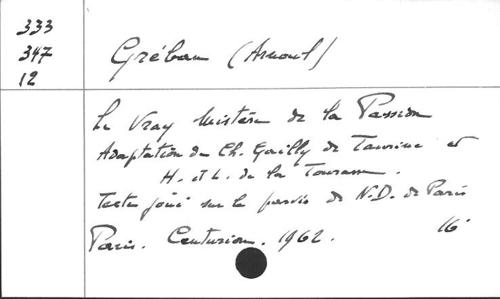 333
347
12
Gréban (Arnoul)
Le Vray Mistère de la Passion
Adaptation de Ch. Gailly de Taurines et
H. et L. de la Tourasse.
Texte joué sur le parvis de N.D. de Paris
Paris. Centurion. 1962. 16°